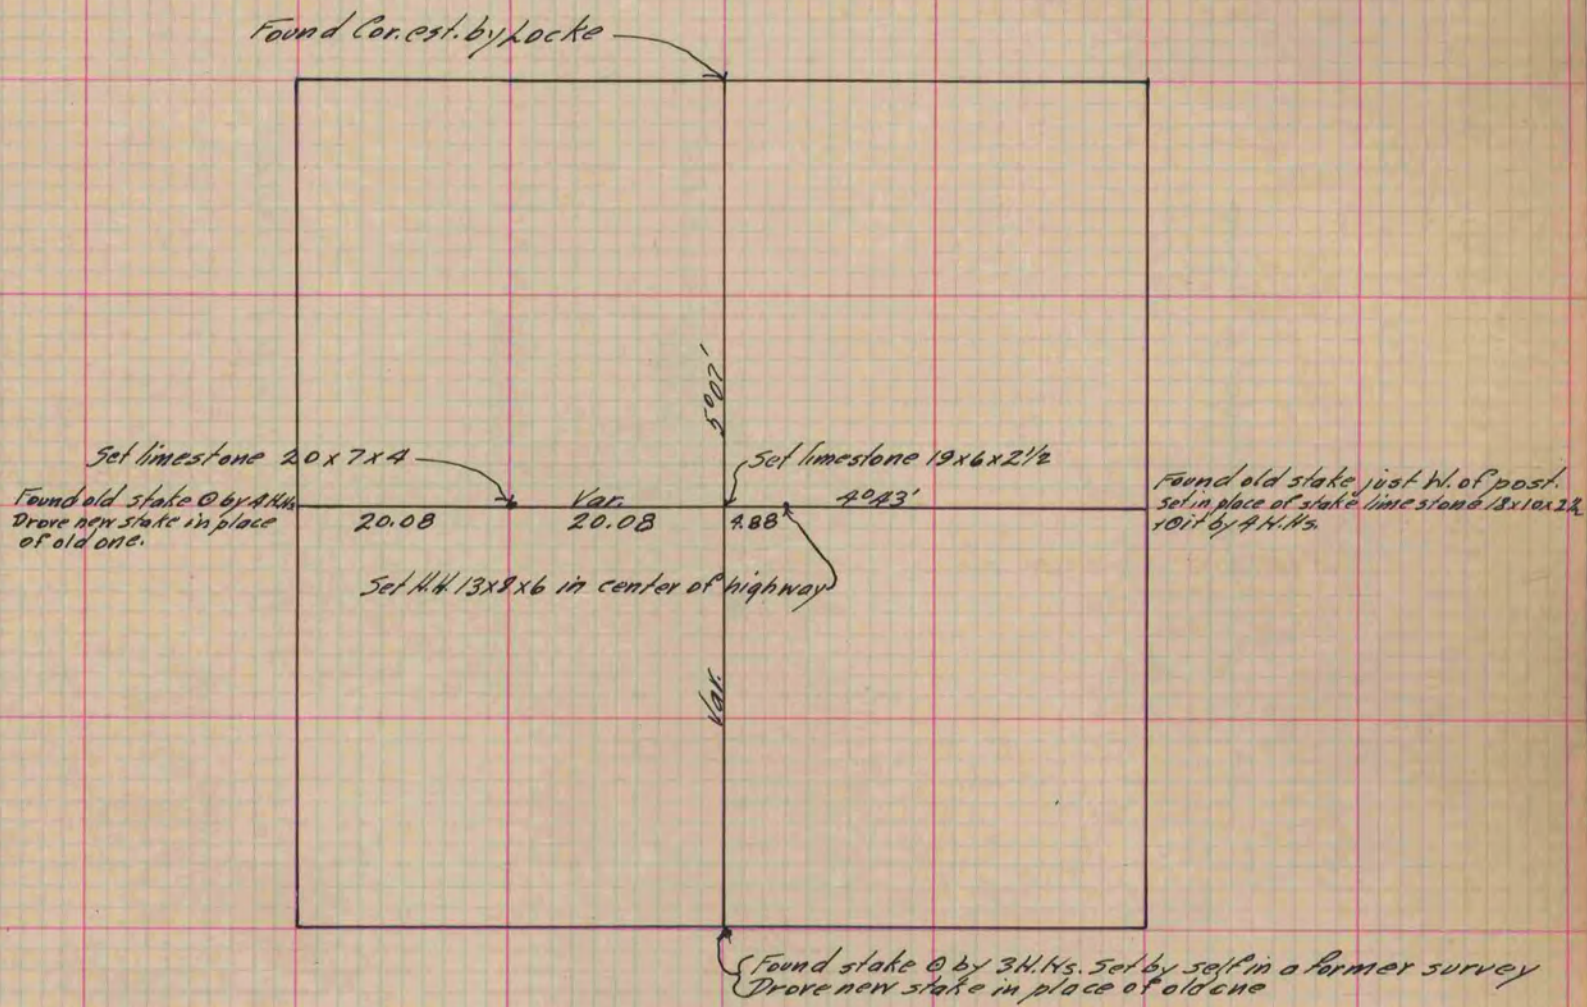 Found Cor. est. by Locke
5°02'
Set limestone 20x7x4
Set limestone 19x6x2½
Found old stake ⊙ by 4 H.Hs.
Drove new stake in place
of old one.
Var.
4°43'
20.08
20.08
4.88
Found old stake just W. of post.
Set in place of stake limestone 18x10x2½
⊙it by 4 H.Hs.
Set H.H. 13x8x6 in center of highway
Var.
Found stake ⊙ by 3 H.Hs. Set by self in a former survey
Drove new stake in place of old one